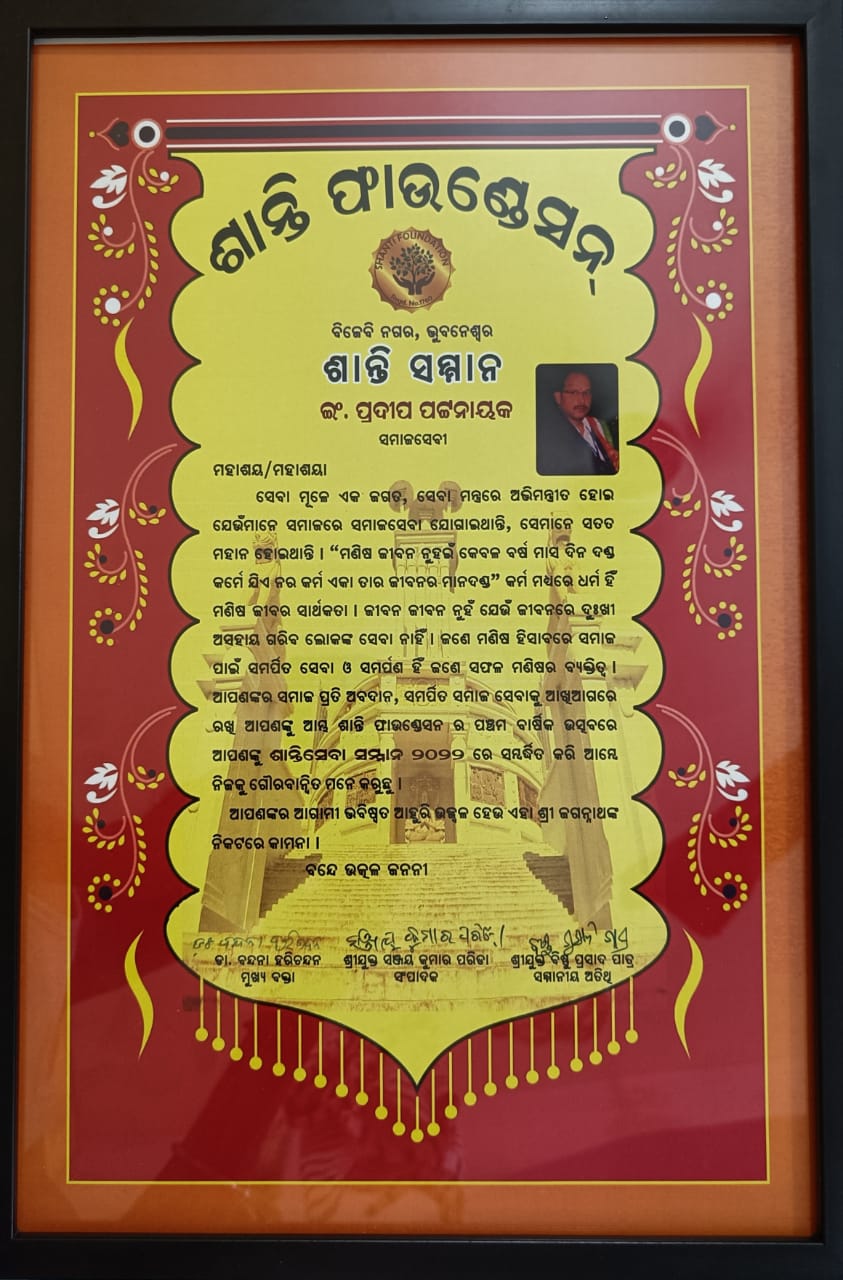 ଶାନ୍ତି ଫାଉଣ୍ଡେସନ୍
SHANTI FOUNDATION
ବିଜେବି ନଗର, ଭୁବନେଶ୍ୱର
ଶାନ୍ତି ସମ୍ମାନ
ଇଂ. ପ୍ରଦୀପ ପଟ୍ଟନାୟକ
ସମାଜସେବୀ
ମହାଶୟ/ମହାଶୟା
ସେବା ମୂଳେ ଏକ ଜଗତ, ସେବା ମନ୍ତ୍ରରେ ଅଭିମନ୍ତ୍ରୀତ ହୋଇ
ଯେଉଁମାନେ ସମାଜରେ ସମାଜସେବା ଯୋଗାଇଥାନ୍ତି, ସେମାନେ ସତତ
ମହାନ ହୋଇଥାନ୍ତି । “ମଣିଷ ଜୀବନ ନୁହଇଁ କେବଳ ବର୍ଷ ମାସ ଦିନ ଦଣ୍ଡ
କର୍ମେ ଯିଏ ନର କର୍ମ ଏକା ତାର ଜୀବନର ମାନଦଣ୍ଡ” କର୍ମ ମଧ୍ୟରେ ଧର୍ମ ହିଁ
ମଣିଷ ଜୀବର ସାର୍ଥକତା । ଜୀବନ ଜୀବନ ନୁହଁ ଯେଉଁ ଜୀବନରେ ଦୁଃଖୀ
ଅସହାୟ ଗରିବ ଲୋକଙ୍କ ସେବା ନାହିଁ । ଜଣେ ମଣିଷ ହିସାବରେ ସମାଜ
ପାଇଁ ସମର୍ପିତ ସେବା ଓ ସମର୍ପଣ ହିଁ ଜଣେ ସଫଳ ମଣିଷର ବ୍ୟକ୍ତିତ୍ୱ ।
ଆପଣଙ୍କର ସମାଜ ପ୍ରତି ଅବଦାନ, ସମର୍ପିତ ସମାଜ ସେବାକୁ ଆଖିଆଗରେ
ରଖି ଆପଣଙ୍କୁ ଆମ୍ଭ ଶାନ୍ତି ଫାଉଣ୍ଡେସନ ର ପଞ୍ଚମ ବାର୍ଷିକ ଉତ୍ସବରେ
ଆପଣଙ୍କୁ ଶାନ୍ତିସେବା ସମ୍ମାନ ୨୦୨୨ ରେ ସମ୍ବର୍ଦ୍ଧିତ କରି ଆମ୍ଭେ
ନିଜକୁ ଗୌରବାନ୍ୱିତ ମନେ କରୁଛୁ ।
ଆପଣଙ୍କର ଆଗାମୀ ଭବିଷ୍ୟତ ଆହୁରି ଉଜ୍ଜ୍ୱଳ ହେଉ ଏହା ଶ୍ରୀ ଜଗନ୍ନାଥଙ୍କ
ନିକଟରେ କାମନା ।
ବନ୍ଦେ ଉତ୍କଳ ଜନନୀ
ଡା. ବନ୍ଦନା ହରିଚନ୍ଦନ
ମୁଖ୍ୟ ବକ୍ତା
ଶ୍ରୀଯୁକ୍ତ ସଞ୍ଜୟ କୁମାର ପରିଡା
ସଂପାଦକ
ଶ୍ରୀଯୁକ୍ତ ବିଷ୍ଣୁ ପ୍ରସାଦ ପାତ୍ର
ସମ୍ମାନୀୟ ଅତିଥି